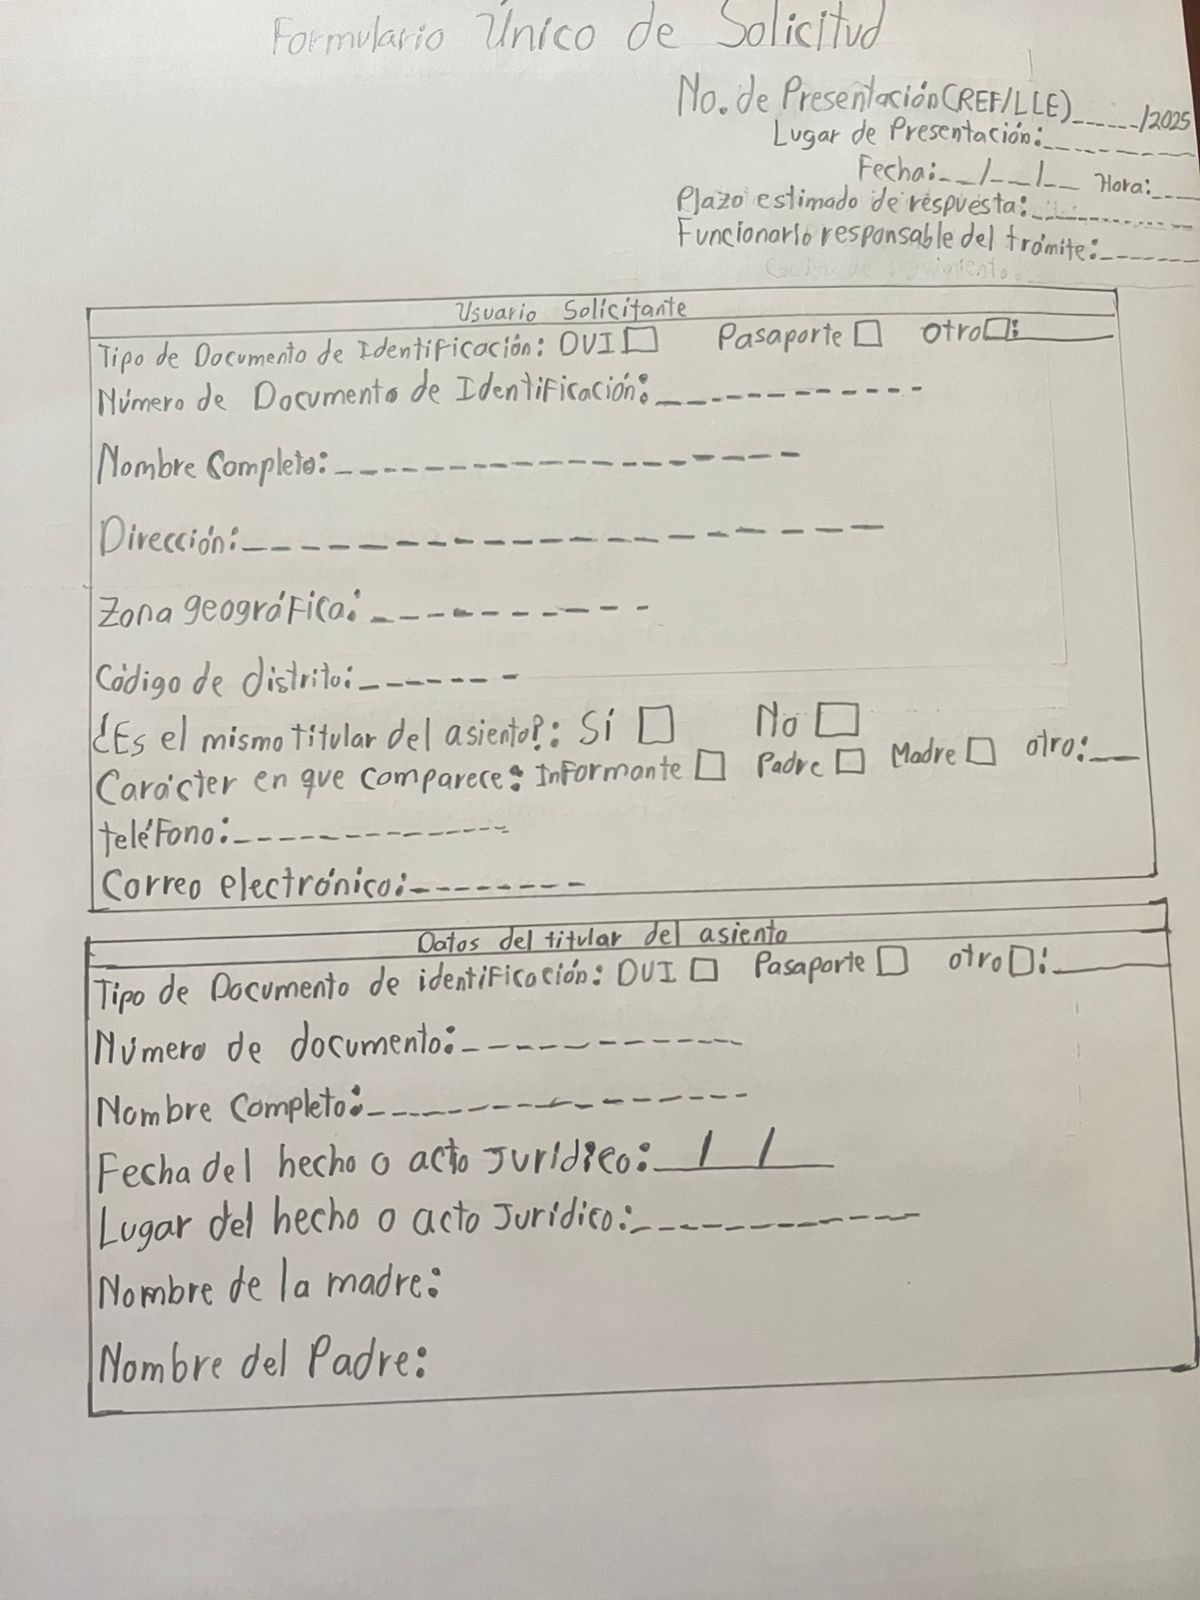 Formulario Único de Solicitud
No. de Presentación(REF/LLE)______/2025
Lugar de Presentación:__________
Fecha:___/___/___ Hora:____
Plazo estimado de respuesta:__________
Funcionario responsable del trámite:_______
Usuario Solicitante
Tipo de Documento de Identificación: DUI □ Pasaporte □ otro□:______
Número de Documento de Identificación:____________
Nombre Completo:_________________
Dirección:___________________
Zona geográfica:__________
Código de distrito:_______
¿Es el mismo titular del asiento?: Sí □ No □
Carácter en que comparece: Informante □ Padre □ Madre □ otro:___
teléfono:______________
Correo electrónico:________
Datos del titular del asiento
Tipo de Documento de identificación: DUI □ Pasaporte □ otro□:______
Número de documento:____________
Nombre Completo:______________
Fecha del hecho o acto Jurídico:___/___/___
Lugar del hecho o acto Jurídico:____________
Nombre de la madre:
Nombre del Padre: